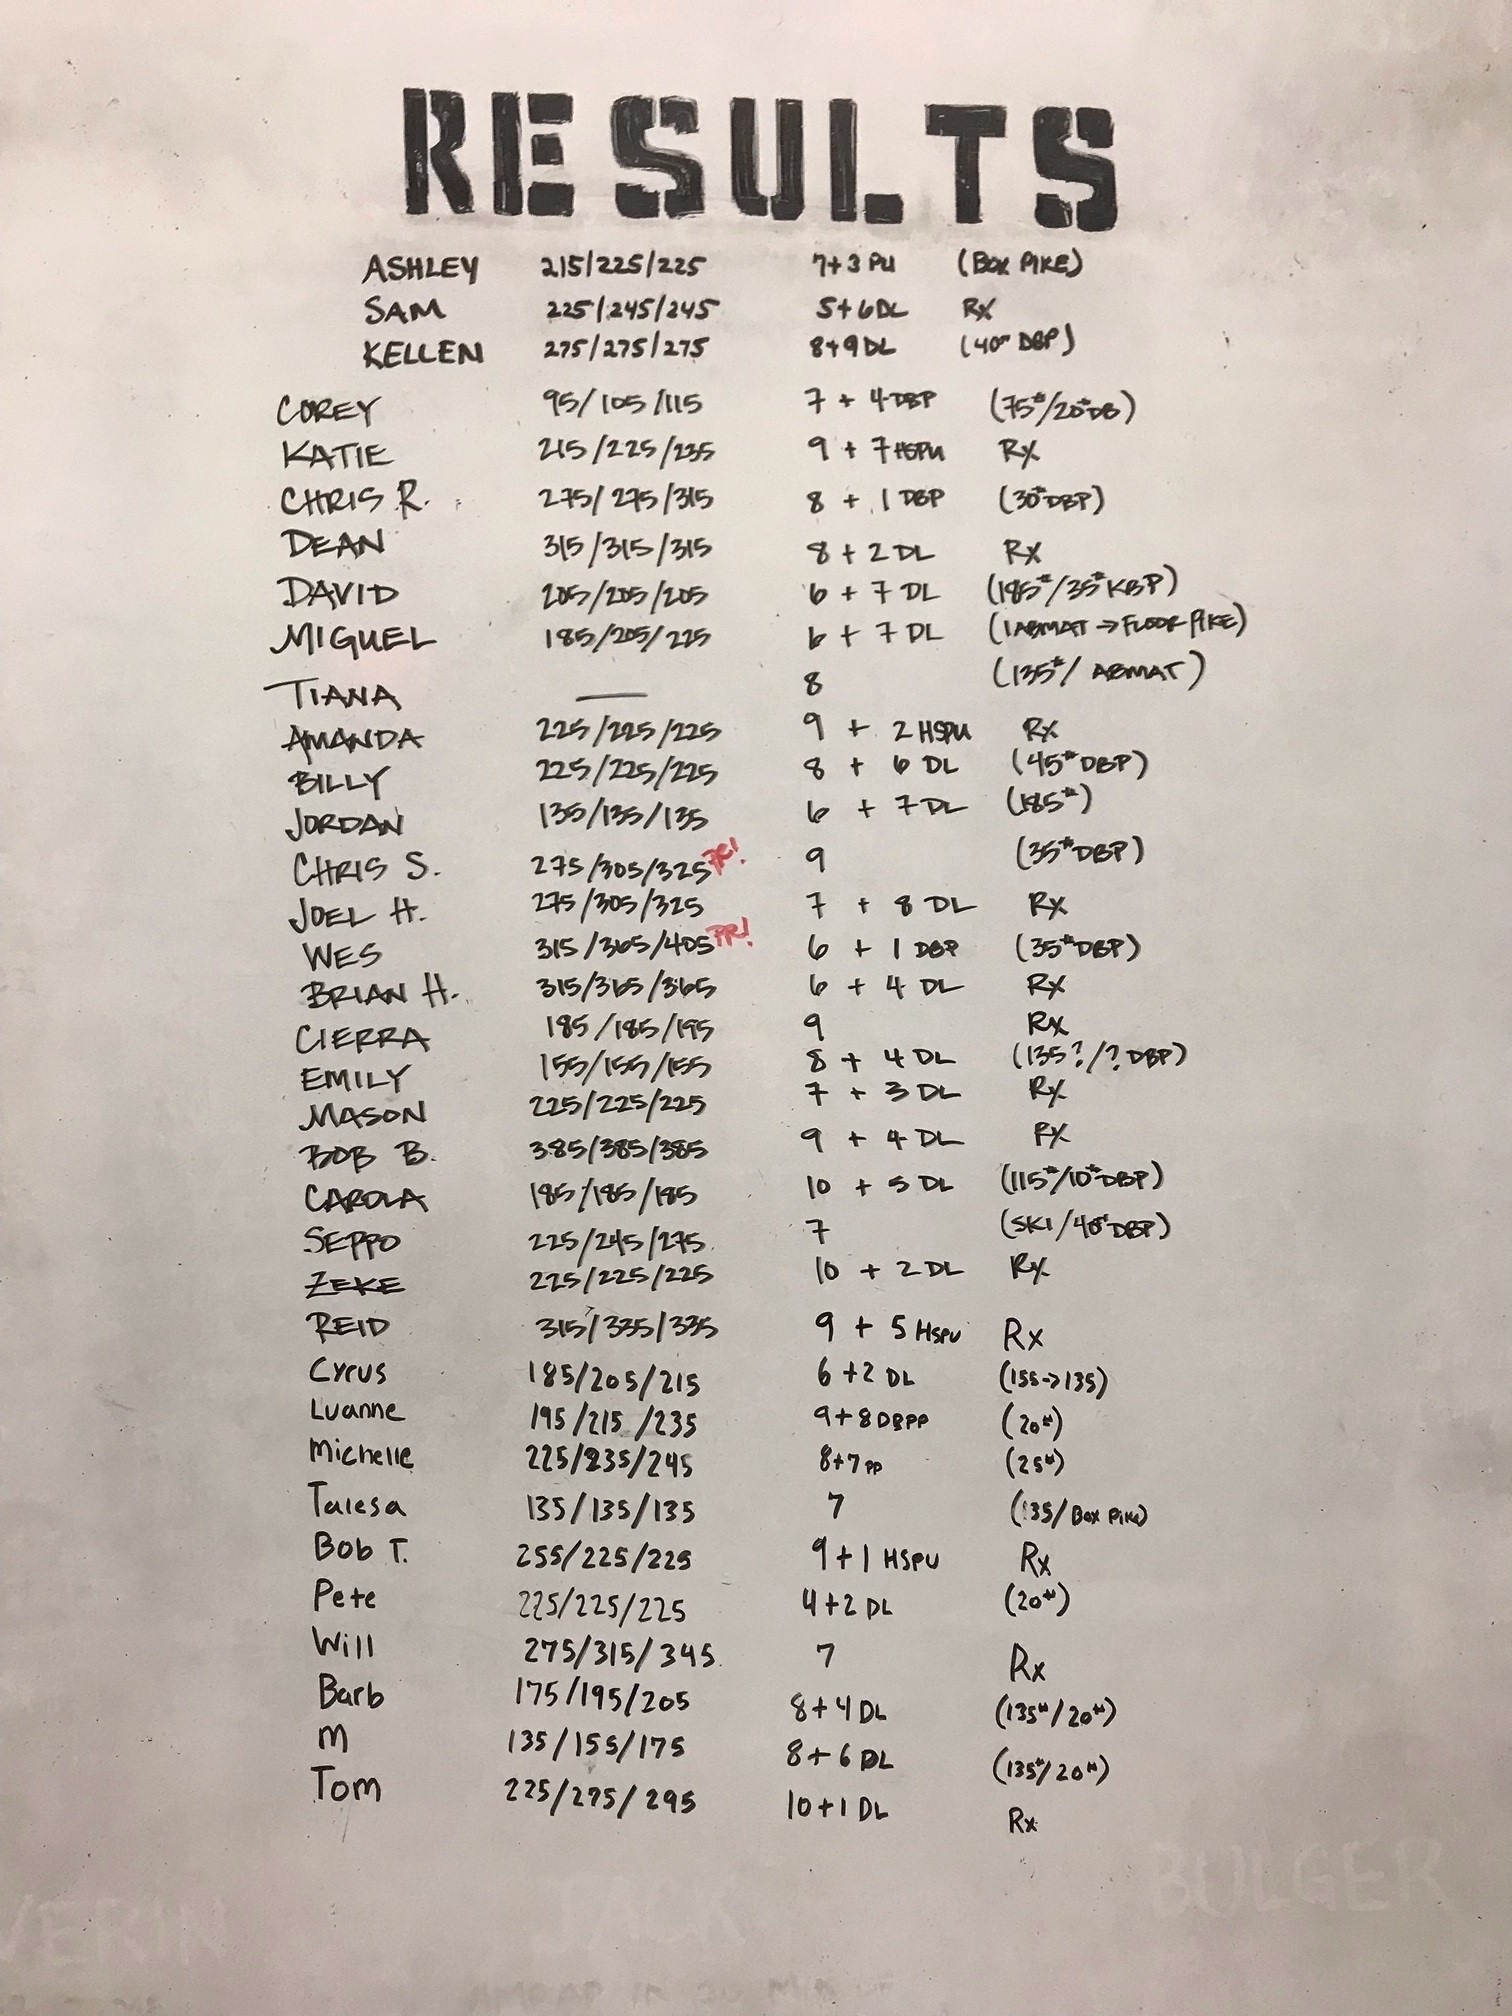 RESULTS
ASHLEY 215/225/225 7+3 PU (BOX PIKE)
SAM 225/245/245 5+6DL RX
KELLEN 275/275/275 8+9DL (40# DBP)
COREY 95/105/115 7 + 4DBP (75#/20#DB)
KATIE 215/225/235 9 + 7HSPU RX
CHRIS R. 275/275/315 8 + 1 DBP (30#DBP)
DEAN 315/315/315 8 + 2 DL RX
DAVID 205/205/205 6 + 7 DL (185#/35#KBP)
MIGUEL 185/205/225 6 + 7 DL (1ABMAT→FLOOR PIKE)
TIANA — 8 (135#/ ABMAT)
AMANDA 225/225/225 9 + 2 HSPU RX
BILLY 225/225/225 8 + 6 DL (45#DBP)
JORDAN 135/135/135 6 + 7 DL (185#)
CHRIS S. 275/305/325 PR! 9 (35#DBP)
JOEL H. 275/305/325 7 + 8 DL RX
WES 315/365/405 PR! 6 + 1 DBP (35#DBP)
BRIAN H. 315/365/365 6 + 4 DL RX
CIERRA 185/185/195 9 RX
EMILY 155/155/155 8 + 4 DL (135?/? DBP)
MASON 225/225/225 7 + 3 DL RX
BOB B. 385/385/385 9 + 4 DL RX
CAROLA 185/185/185 10 + 5 DL (115#/10#DBP)
SEPPO 225/245/275 7 (SKI/40#DBP)
ZEKE 225/225/225 10 + 2 DL RX
REID 315/335/335 9 + 5 HSPU Rx
Cyrus 185/205/215 6 +2 DL (155->135)
Luanne 195/215/235 9+8 DBPP (20#)
Michelle 225/235/245 8+7 PP (25#)
Talesa 135/135/135 7 (135/Box Pike)
Bob T. 255/225/225 9+1 HSPU Rx
Pete 225/225/225 4+2 DL (20#)
Will 275/315/345 7 Rx
Barb 175/195/205 8+4 DL (135#/20#)
M 135/155/175 8+6 DL (135#/20#)
Tom 225/275/295 10+1 DL Rx
BULGER
JACK